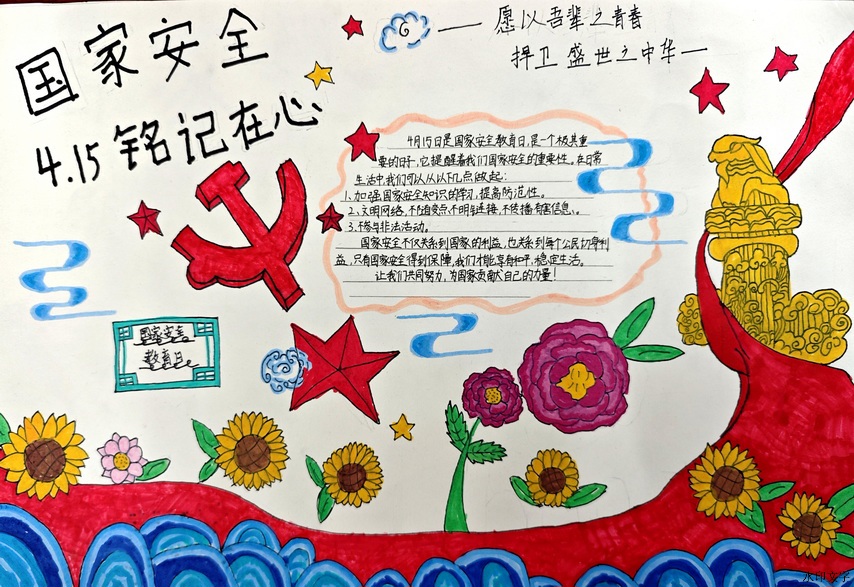 国家安全
4.15 铭记在心
—— 愿以吾辈之青春
捍卫盛世之中华 —
4月15日是国家安全教育日,是一个极其重
要的日子,它提醒着我们国家安全的重要性。在日常
生活中,我们可以从以下几点做起:
1、加强国家安全知识的学习,提高防范性。
2、文明网络,不随意点不明链接,不传播有害信息、。
3.不参与非法活动。
国家安全不仅关系到国家的利益,也关系到每个公民切身利
益,只有国家安全得到保障,我们才能享有和平,稳定生活。
让我们共同努力,为国家贡献自己的力量!
国家安全
教育日。
水印文字